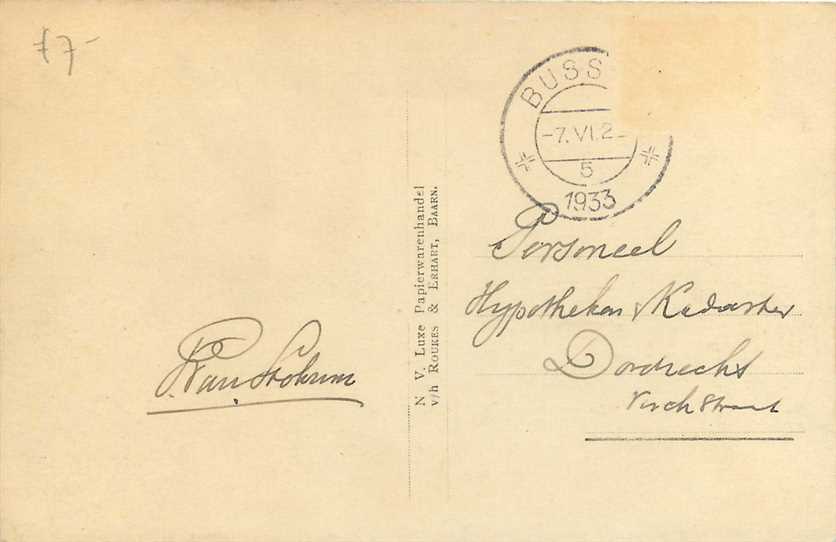 f 7-
BUSS
-7.VI.2
5
1933
N. V. Luxe Papierwarenhandel
v/h ROUKES & ERHART, BAARN.
Personeel
Hypotheken & Kadaster
Dordrecht
straat